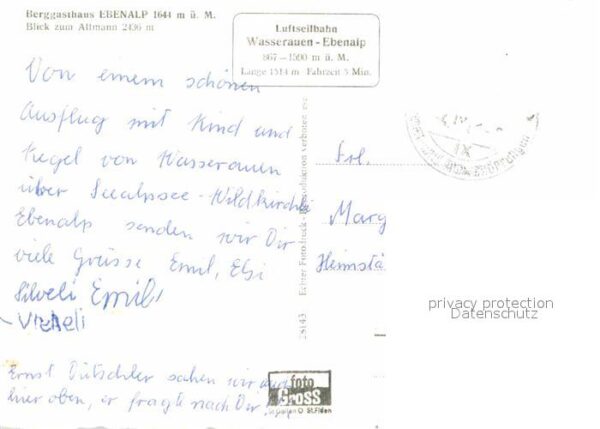 Berggasthaus EBENALP 1644 m ü. M.
Blick zum Altmann 2436 m
Luftseilbahn
Wasserauen - Ebenalp
867 – 1590 m ü. M.
Länge 1514 m Fahrzeit 5 Min.
Von einem schönen
Ausflug mit Kind und
Kegel von Wasserauen
über Seealpsee - Wildkirchli
Ebenalp senden wir Dir
viele Grüsse Emil, Elsi
Silveli Emil
Vreneli
Ernst sahen wir auch
hier oben, er fragte nach Dir
Frl.
Marg
Heimstä
28143 Echter Fotodruck - Reproduktion verboten
foto
GROSS
St. Gallen O St. Fiden
privacy protection
Datenschutz